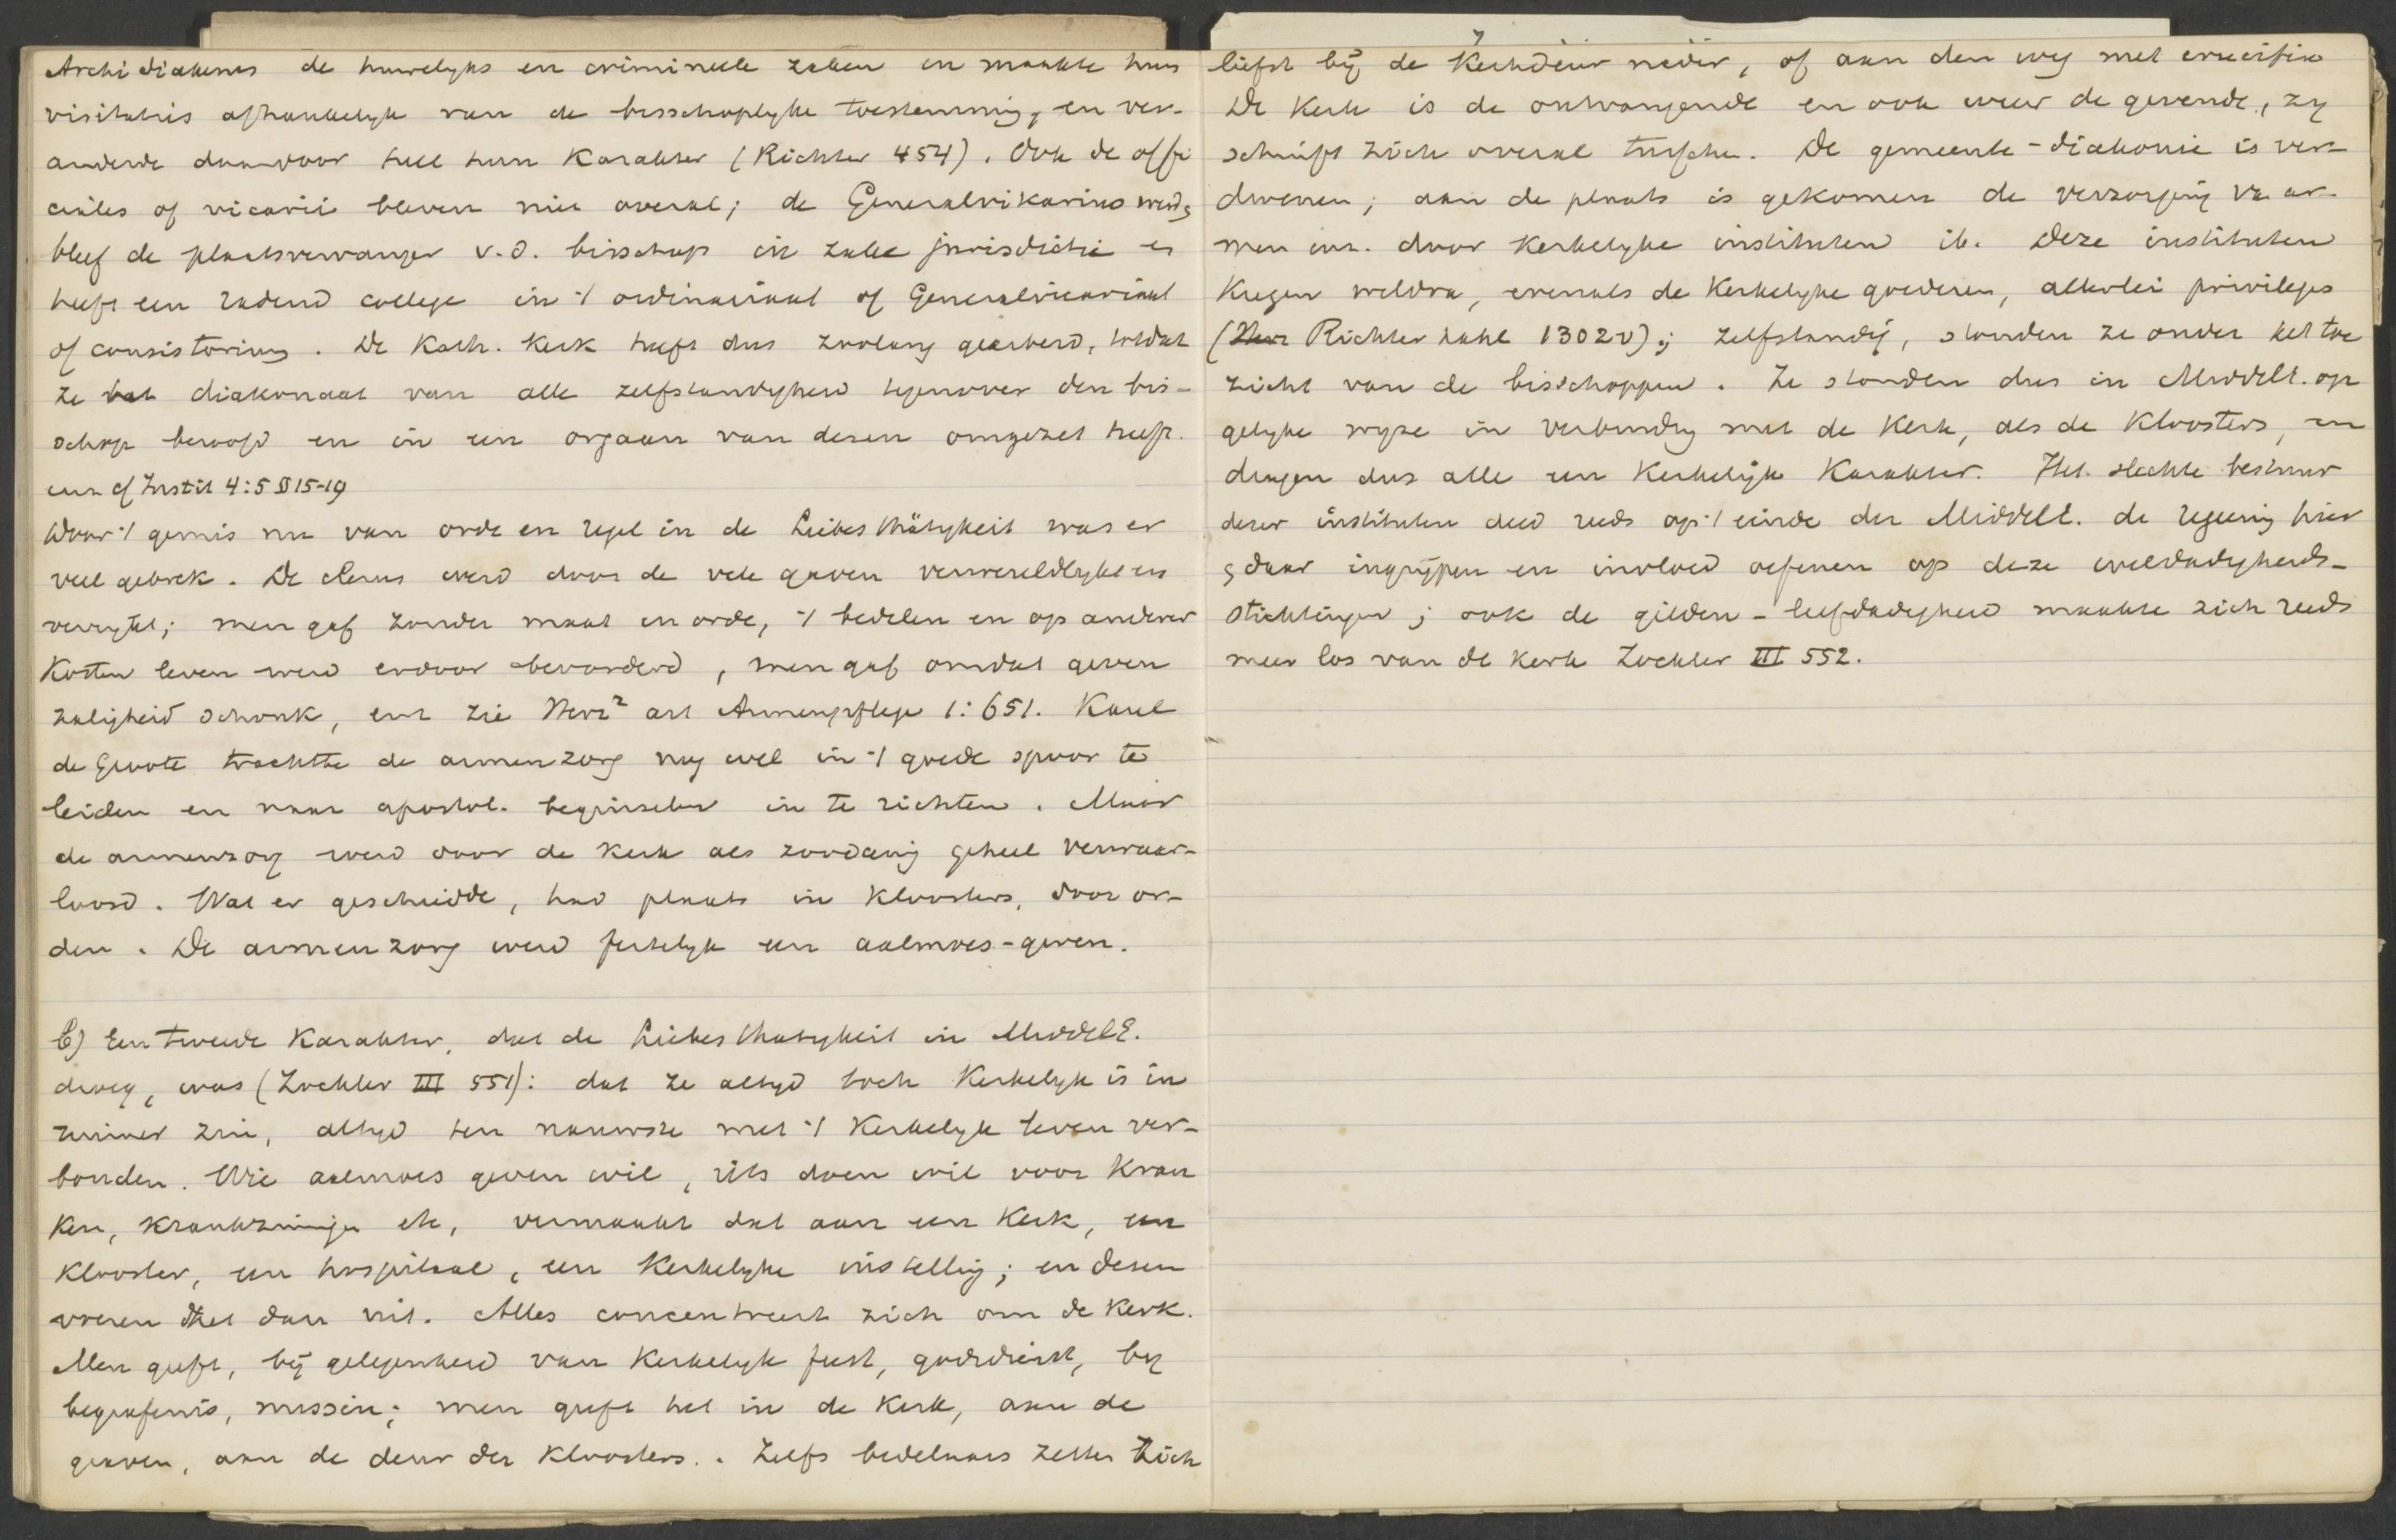 Archidiakens de huwelyks en criminele zaken en maakte hun
visitatis afhankelyk van de bisschoplyke toestemming, en ver-
anderde daardoor heel hun karakter (Richter 454). Ook de offi
ciales of vicarii bleven niet overal; de Generalvikarius werd &
bleef de plaatsvervanger v.d. bisschop in zake jurisdictie en
heeft een radend college in 't ordinariaat of Generalvicariaat
of consistorium. De Kath. Kerk heeft dus zoolang gearbeid, totdat
ze het diakonaat van alle zelfstandigheid tegenover den bis-
schop beroofd en in een orgaan van dezen omgezet heeft.
cf Instit 4:5 §§ 15-19
Door 't gemis nu van orde en regel in de Liebesthätigkeit was er
veel gebrek. De clerus werd door de vele gaven verwereldlykt en
verrykt; men gaf zonder maat en orde, 't bedelen en op anderer
kosten leven werd erdoor bevorderd, men gaf omdat geven
zaligheid schonk, enz zie Herz² art Armenpflege 1:651. Karel
de Groote trachtte de armenzorg nog wel in 't goede spoor te
leiden en naar apostol. beginselen in te richten. Maar
de armenzorg werd door de kerk als zoodanig geheel verwaar-
loosd. Wat er geschiedde, had plaats in kloosters, door or-
den. De armenzorg werd feitelyk een aalmoes-geven.
b) Een tweede karakter, dat de Liebesthatigkeit in MiddelE.
droeg, was (Zockler III 551): dat ze altyd toch kerkelyk is in
ruimer zin, altyd ten nauwste met 't kerkelyk leven ver-
bonden. Wie aalmoes geven wil, iets doen wil voor kran
ken, krankzinnigen etc, vermaakt dat aan een kerk, een
klooster, een hospitaal, een kerkelyke instelling; en dezen
voeren het dan uit. Alles concentreert zich om de kerk.
Men geeft, bij gelegenheid van kerkelyk feest, godsdienst, by
begrafenis, missen; men geeft het in de kerk, aan de
graven, aan de deur der kloosters.. Zelfs bedelaars zetten zich
7
liefst bij de kerkdeur neder, of aan den weg met crucifix
De kerk is de ontvangende en ook weer de gevende, zy
schuift zich overal tusschen. De gemeente-diakonie is ver-
dwenen; aan de plaats is gekomen de verzorging van ar-
men enz. door kerkelyke instituten ib. Deze instituten
kregen weldra, evenals de kerkelyke goederen, allerlei privileges
(Richter Dahl 1302v); zelfstandig, stonden ze onder het toe
zicht van de bisschoppen. Ze stonden dus in Middell. op
gelyke wyze in verbinding met de kerk, als de kloosters, en
dragen dus alle een kerkelijk karakter. Het slechte bestuur
dezer instituten deed reeds op 't einde der Middell. de regeering hier
& daar ingrijpen en invloed oefenen op deze weldadigheids-
stichtingen; ook de gilden-liefdadigheid maakte zich reeds
meer los van de kerk Zockler III 552.